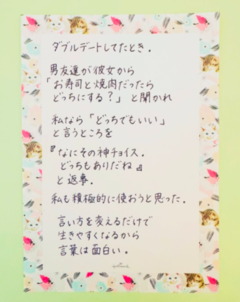 ダブルデートしてたとき。
男友達が彼女から
「お寿司と焼肉だったら
どっちにする？」と聞かれ
私なら「どっちでもいい」
と言うところを
『なにその神チョイス。
どっちもありだね』
と返事。
私も積極的に使おうと思った。
言い方を変えるだけで
生きやすくなるから
言葉は面白い。